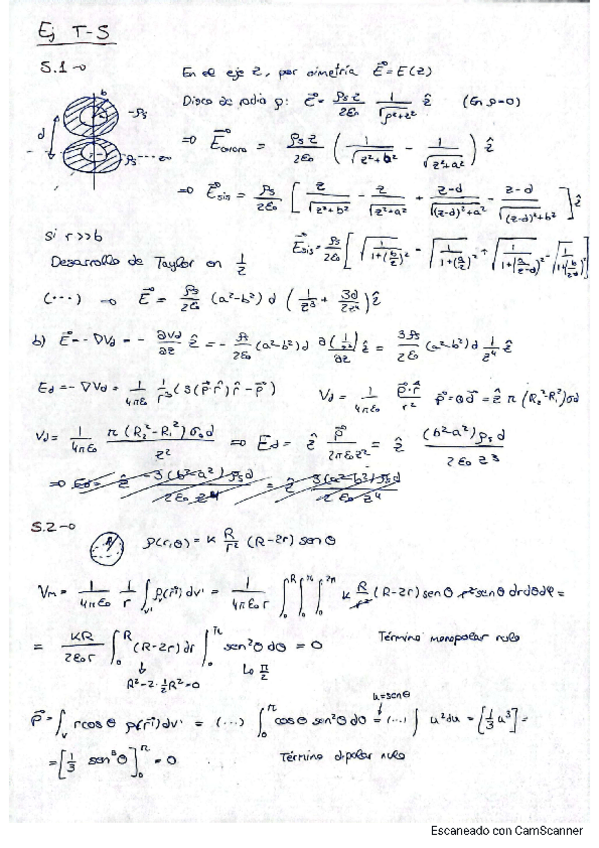 Ej T-5
5.1-o
En el eje z, por simetría E⃗ = E(z)
Disco de radio ρ: E⃗ = ρs z / 2ε₀ 1/√(ρ²+z²) ẑ (En ρ=0)
b
-ρs
d
a
ρs
⇒ E⃗corona = ρs z / 2ε₀ ( 1/√(z²+b²) − 1/√(z²+a²) ) ẑ
⇒ E⃗sis = ρs / 2ε₀ [ z/√(z²+b²) − z/√(z²+a²) + (z-d)/√((z-d)²+a²) − (z-d)/√((z-d)²+b²) ] ẑ
si r >> b
Desarrollo de Taylor en 1/z
E⃗sis = ρs / 2ε₀ [ √(1/(1+(b/z)²)) − √(1/(1+(a/z)²)) + √(1/(1+(a/z-d)²)) − √(1/(1+(b/z-d)²)) ]
(...) → E⃗ = ρs / 2ε₀ (a²-b²) d ( 1/z³ + 3d/2z⁴ ) ẑ
b) E⃗ = -∇Vd = - ∂Vd/∂z ẑ = - ρs/2ε₀ (a²-b²) d ∂(1/z³)/∂z ẑ = 3ρs/2ε₀ (a²-b²) d 1/z⁴ ẑ
Ed = -∇Vd = 1/4πε₀ 1/r³ (3(p⃗·r̂) r̂ - p⃗)
Vd = 1/4πε₀ p⃗·r̂/r² p⃗ = Q d⃗ = ẑ π (R₂²-R₁²) σd
Vd = 1/4πε₀ π (R₂²-R₁²) σ₀ d / z² ⇒ Ed = ẑ p⃗/2πε₀z² = ẑ (b²-a²) ρs d / 2ε₀ z³
5.2-o
R
ρ(r,θ) = K R/r² (R-2r) sen θ
Vm = 1/4πε₀ 1/r ∫v' ρ(r⃗') dv' = 1/4πε₀r ∫₀ᴿ ∫₀^π ∫₀^2π K R/r² (R-2r) sen θ r² sen θ dr dθ dφ =
= KR/2ε₀r ∫₀ᴿ (R-2r) dr ∫₀^π sen²θ dθ = 0 Término monopolar nulo
R²-2·½R²=0 ↳ π/2
u=senθ
P⃗ = ∫v r cos θ ρ(r⃗') dv' = (...) ∫₀^π cos θ sen²θ dθ = (...) ∫ u² du = [⅓ u³] =
= [⅓ sen³θ]₀^π = 0 Término dipolar nulo
Escaneado con CamScanner